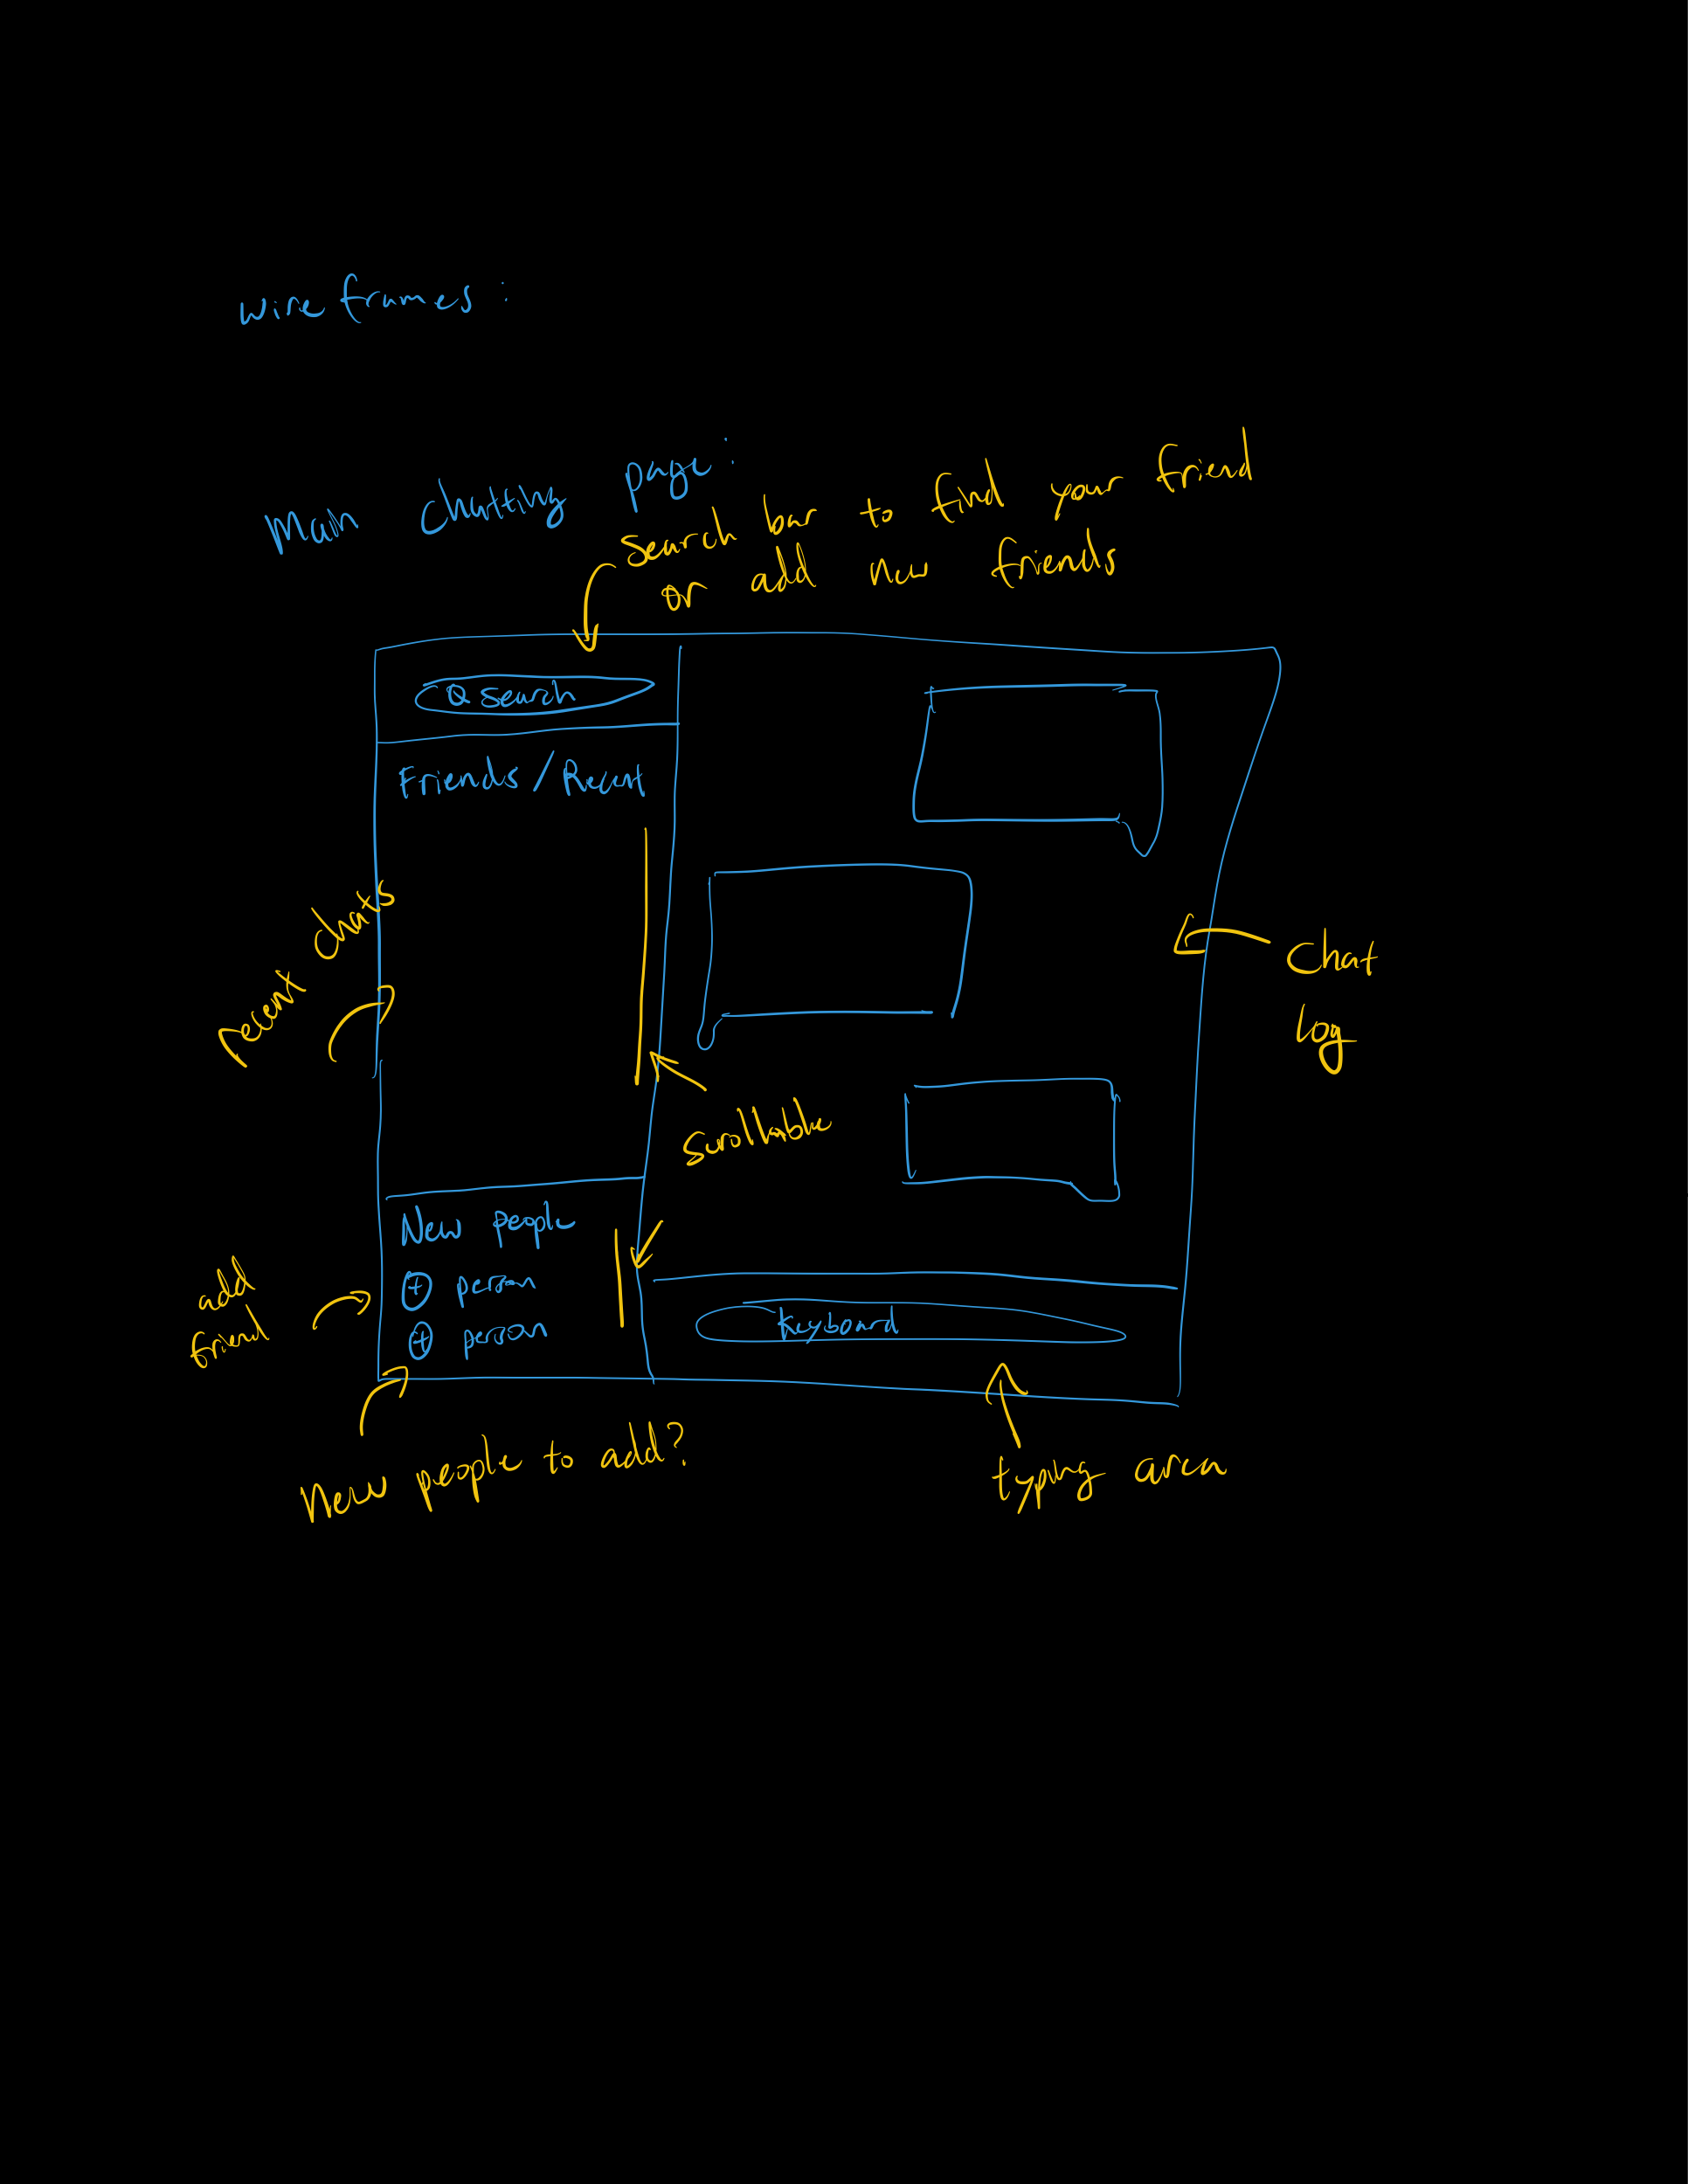 wireframes:
Main chatting page:
Search bar to find your friend
or add new friends
Search
Friends/Recent
recent chats
Chat
log
Scrollable
New people
+ person
+ person
add
friend
Keyboard
New people to add?
typing area